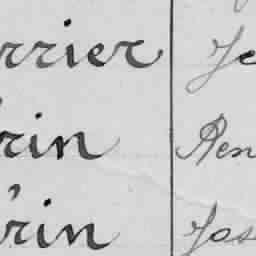 rrier Je
rin Ren
érin Jos